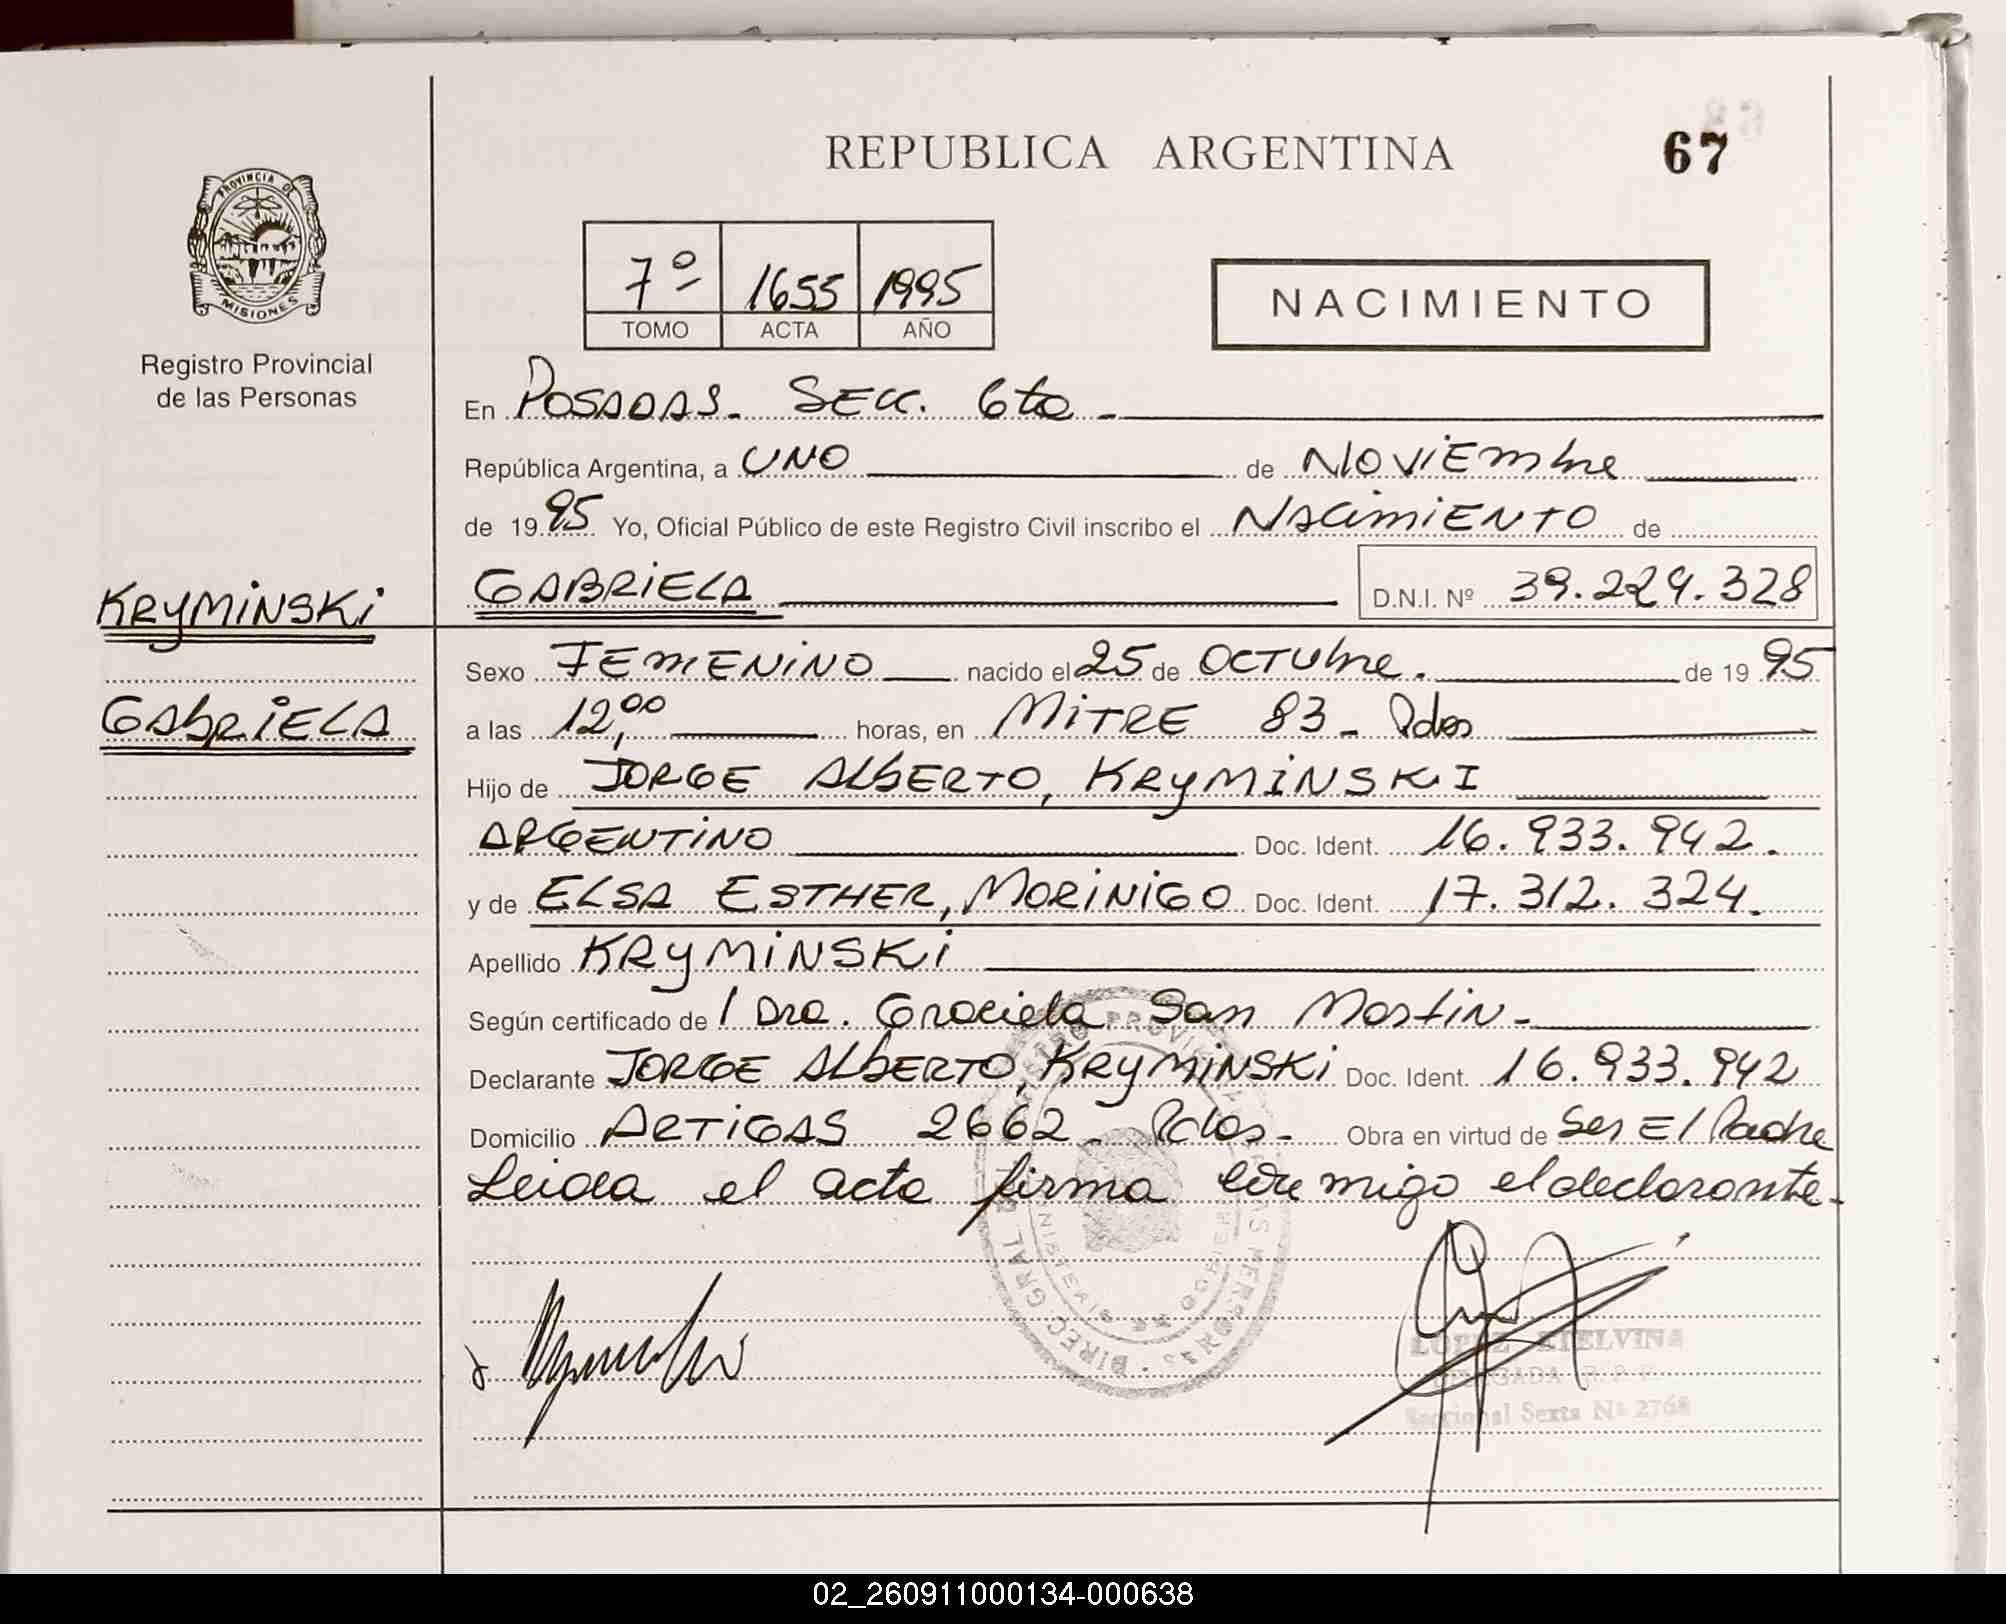 REPUBLICA ARGENTINA
67
PROVINCIA DE
MISIONES
Registro Provincial
de las Personas
7º 1655 1995
TOMO ACTA AÑO
NACIMIENTO
En POSADAS. SECC. 6ta -
República Argentina, a UNO de NOViEmbre
de 1995 Yo, Oficial Público de este Registro Civil inscribo el NACimiENTO de
GABRiELA D.N.I. Nº 39.224.328
KRYMiNSKi
GAbRiELA
Sexo FEmENiNO nacido el 25 de OCTUbre. de 19 95
a las 12,00 horas, en MiTRE 83 - Pdas
Hijo de JORGE ALbERTO, KRyMiNSKI
ARGENTiNO Doc. Ident. 16.933.942.
y de ELSA ESTHER, MORiNiGO Doc. Ident. 17.312.324.
Apellido KRyMiNSKi
Según certificado de / Dra. Graciela San Martin -
Declarante JORGE ALbERTO, KRyMiNSKi Doc. Ident. 16.933.942
Domicilio ARTiGAS 2662 - Pdas - Obra en virtud de Ser El Padre
Leida el acta firma conmigo el declarante -
LOPEZ ETELVINA
DELEGADA R. P. P.
Seccional Sexta Nº 2768
02_260911000134-000638